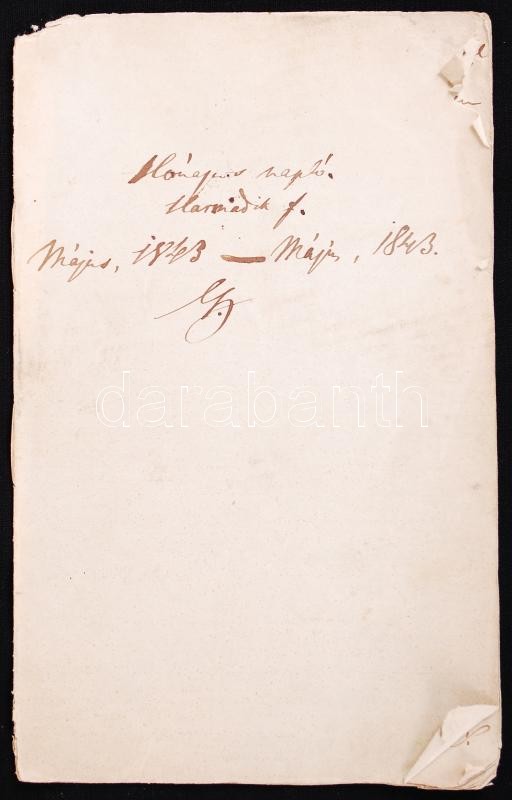 Hónapos napló.
Harmadik f.
Május, 1843 — Május, 1843.
darabanth